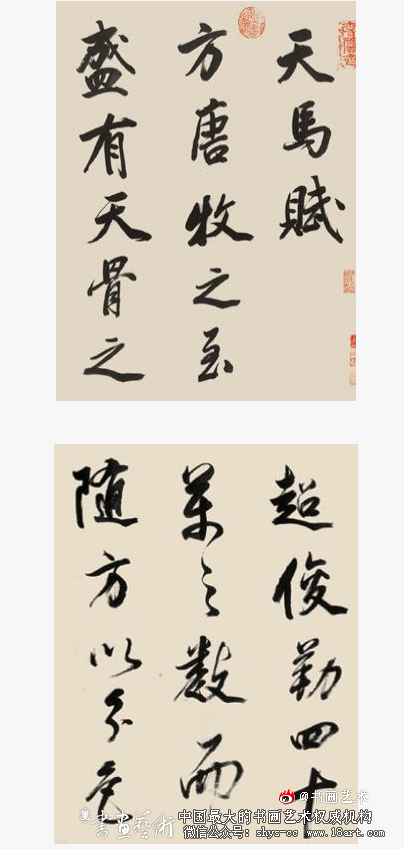 天馬賦
方唐牧之至
盛有天骨之
超俊勒四十
萬之數而
随方以分色
@书画艺术
書畫藝術
中国最大的书画艺术权威机构
微信公众号: shys-cc www.18art.com